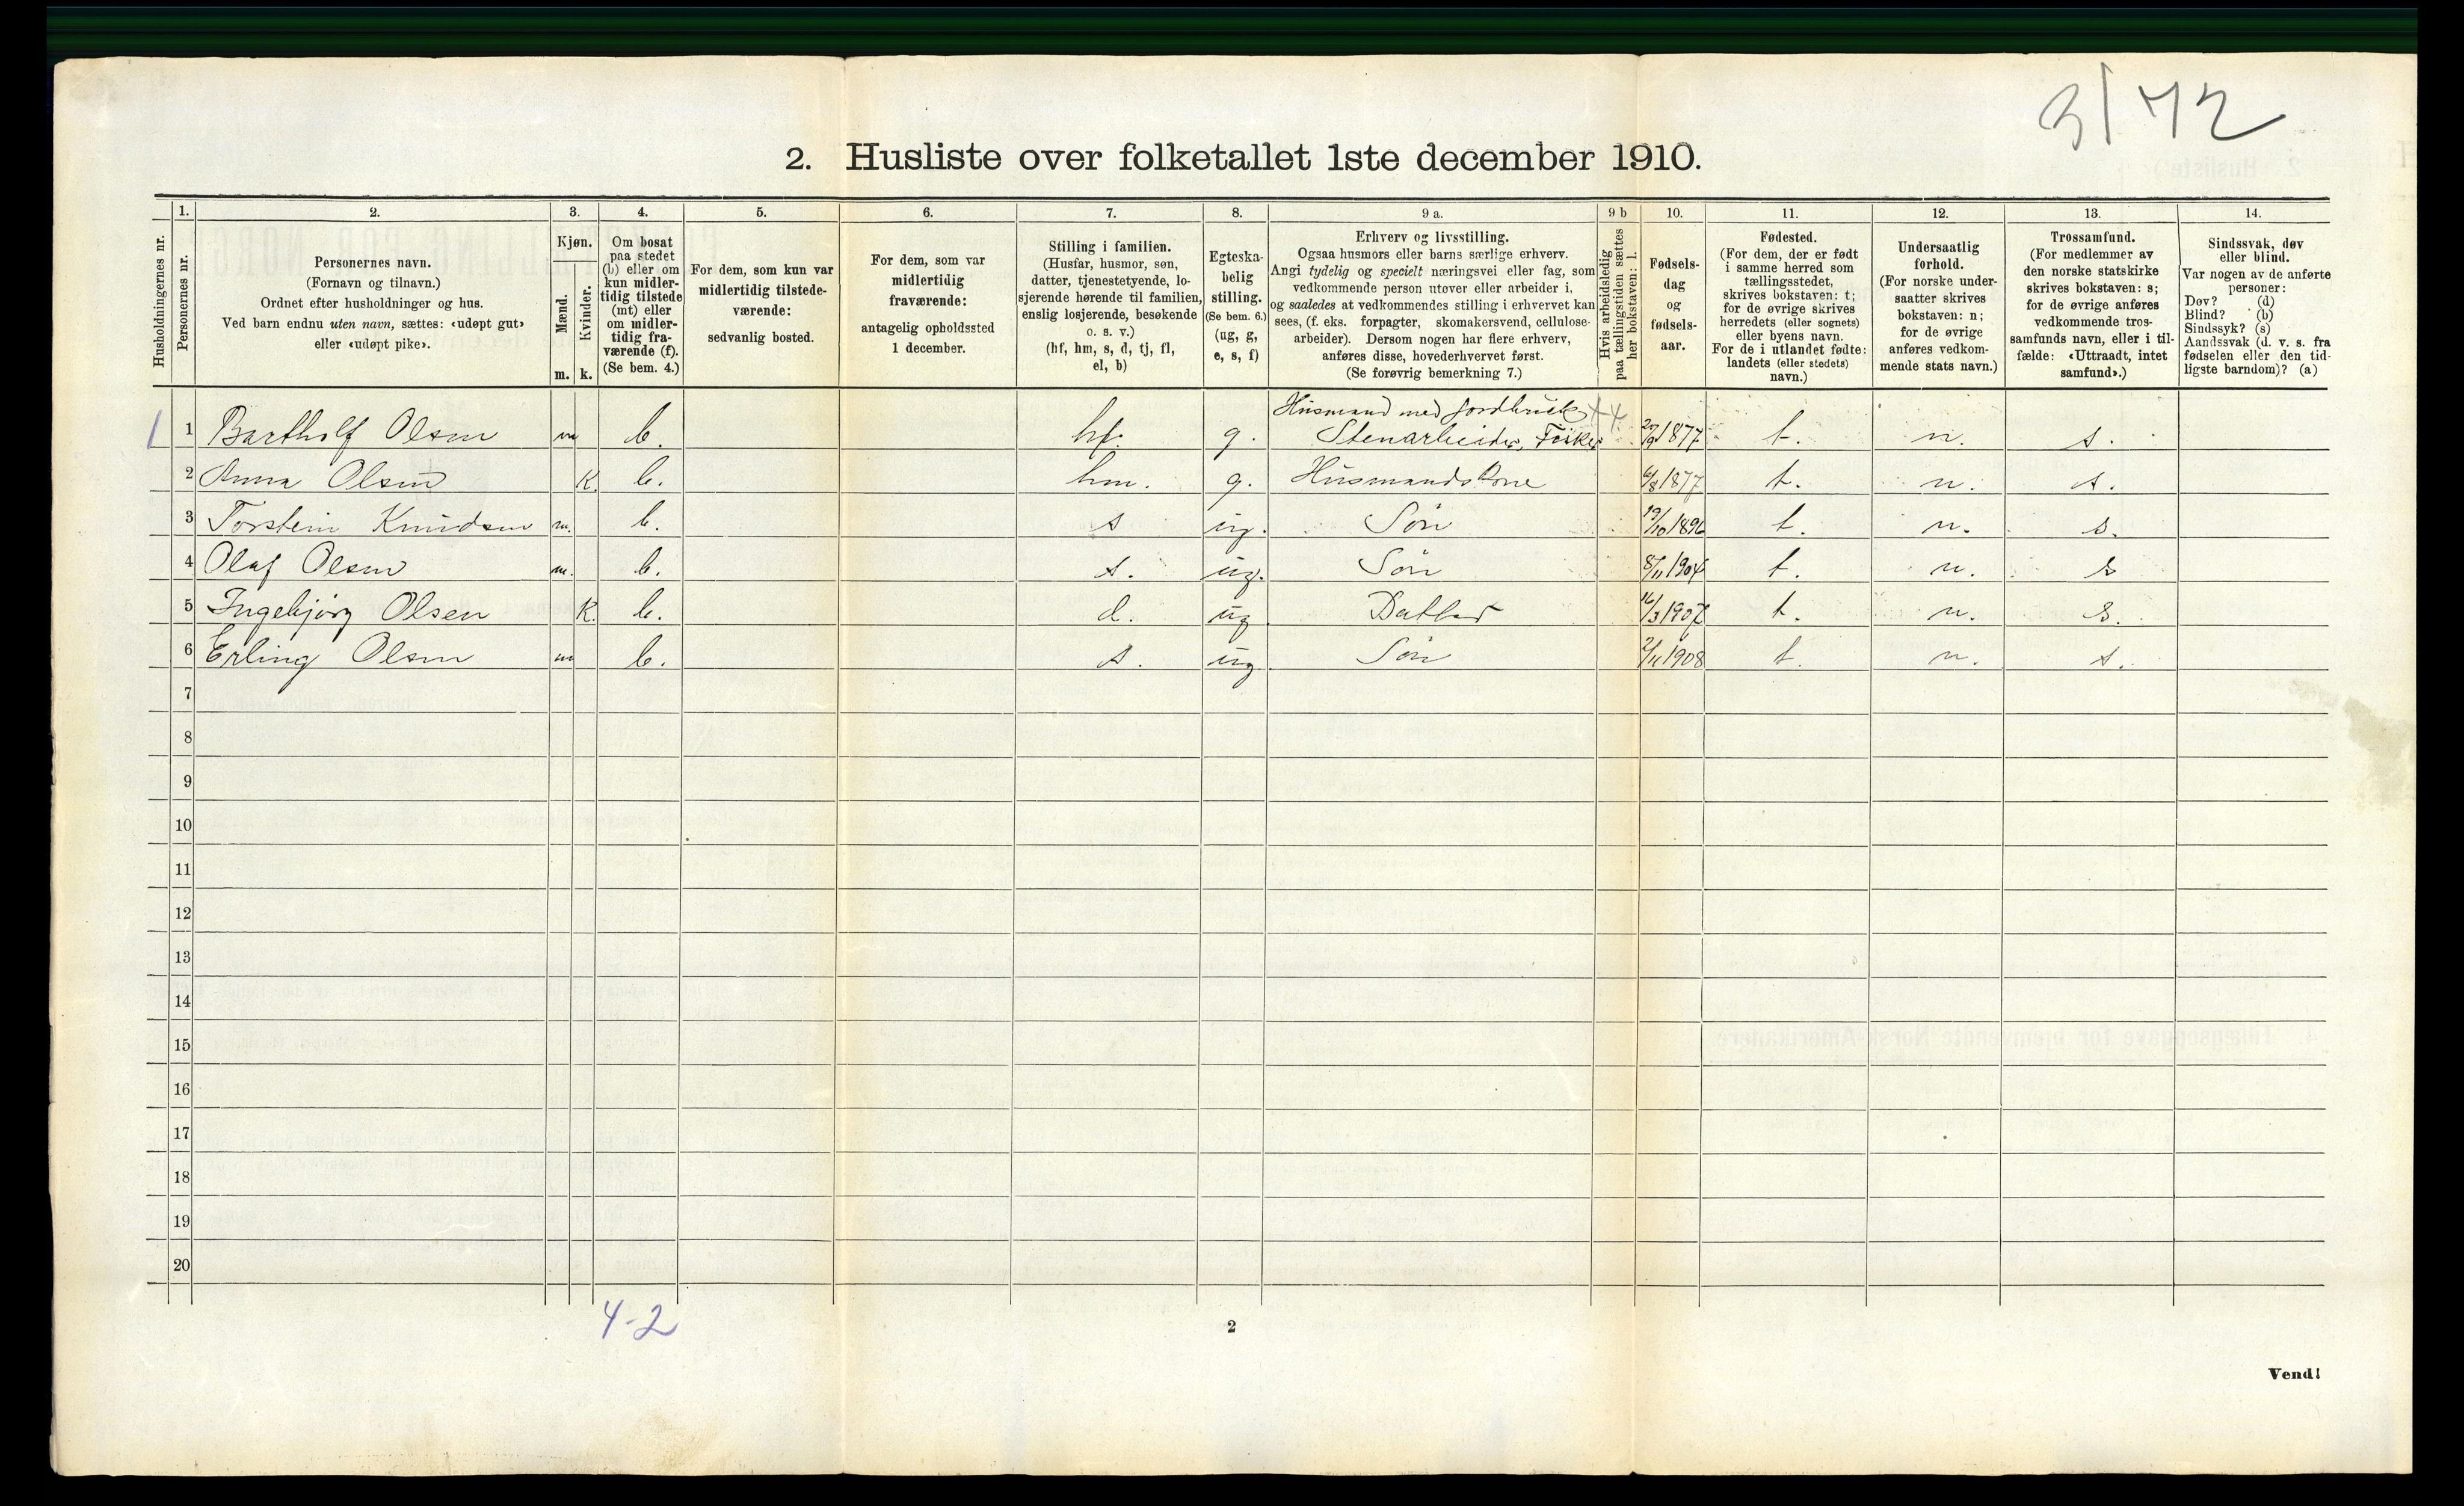 3/42
2. Husliste over folketallet 1ste december 1910.
Husholdningernes nr.
1.
Personernes nr.
2.
Personernes navn.
(Fornavn og tilnavn.)
Ordnet efter husholdninger og hus.
Ved barn endnu uten navn, sættes: «udøpt gut»
eller «udøpt pike».
3.
Kjøn.
Mænd.
Kvinder.
m. k.
4.
Om bosat
paa stedet
(b) eller om
kun midler-
tidig tilstede
(mt) eller
om midler-
tidig fra-
værende (f).
(Se bem. 4.)
5.
For dem, som kun var
midlertidig tilstede-
værende:
sedvanlig bosted.
6.
For dem, som var
midlertidig
fraværende:
antagelig opholdssted
1 december.
7.
Stilling i familien.
(Husfar, husmor, søn,
datter, tjenestetyende, lo-
sjerende hørende til familien,
enslig losjerende, besøkende
o. s. v.)
(hf, hm, s, d, tj, fl,
el, b)
8.
Egteska-
belig
stilling.
(Se bem. 6.)
(ug, g,
e, s, f)
9 a.
Erhverv og livsstilling.
Ogsaa husmors eller barns særlige erhverv.
Angi tydelig og specielt næringsvei eller fag, som
vedkommende person utøver eller arbeider i,
og saaledes at vedkommendes stilling i erhvervet kan
sees, (f. eks. forpagter, skomakersvend, cellulose-
arbeider). Dersom nogen har flere erhverv,
anføres disse, hovederhvervet først.
(Se forøvrig bemerkning 7.)
9 b
Hvis arbeidsledig
paa tællingstiden sættes
her bokstaven: l.
10.
Fødsels-
dag
og
fødsels-
aar.
11.
Fødested.
(For dem, der er født
i samme herred som
tællingsstedet,
skrives bokstaven: t;
for de øvrige skrives
herredets (eller sognets)
eller byens navn.
For de i utlandet fødte:
landets (eller stedets)
navn.)
12.
Undersaatlig
forhold.
(For norske under-
saatter skrives
bokstaven: n;
for de øvrige
anføres vedkom-
mende stats navn.)
13.
Trossamfund.
(For medlemmer av
den norske statskirke
skrives bokstaven: s;
for de øvrige anføres
vedkommende tros-
samfunds navn, eller i til-
fælde: «Uttraadt, intet
samfund».)
14.
Sindssvak, døv
eller blind.
Var nogen av de anførte
personer:
Døv? (d)
Blind? (b)
Sindssyk? (s)
Aandssvak (d. v. s. fra
fødselen eller den tid-
ligste barndom)? (a)
Husmand med jordbruk
1 1 Bartholf Olsen m b. hf. g. Stenarbeider, Fisker 20/9 1877 t. n. s.
2 Anna Olsen K. b. hm. g. Husmandskone 6/8 1877 t. n. s.
3 Torstein Knudsen m. b. s ug. Søn 19/10 1896 t. n. s.
4 Olaf Olsen m. b. s. ug. Søn 8/11 1904 t. n. s
5 Ingebjørg Olsen K. b. d. ug Datter 16/3 1907 t. n. s.
6 Erling Olsen m b. s. ug Søn 2/11 1908 t. n. s.
7
8
9
10
11
12
13
14
15
16
17
18
19
20
4-2
2
Vend!